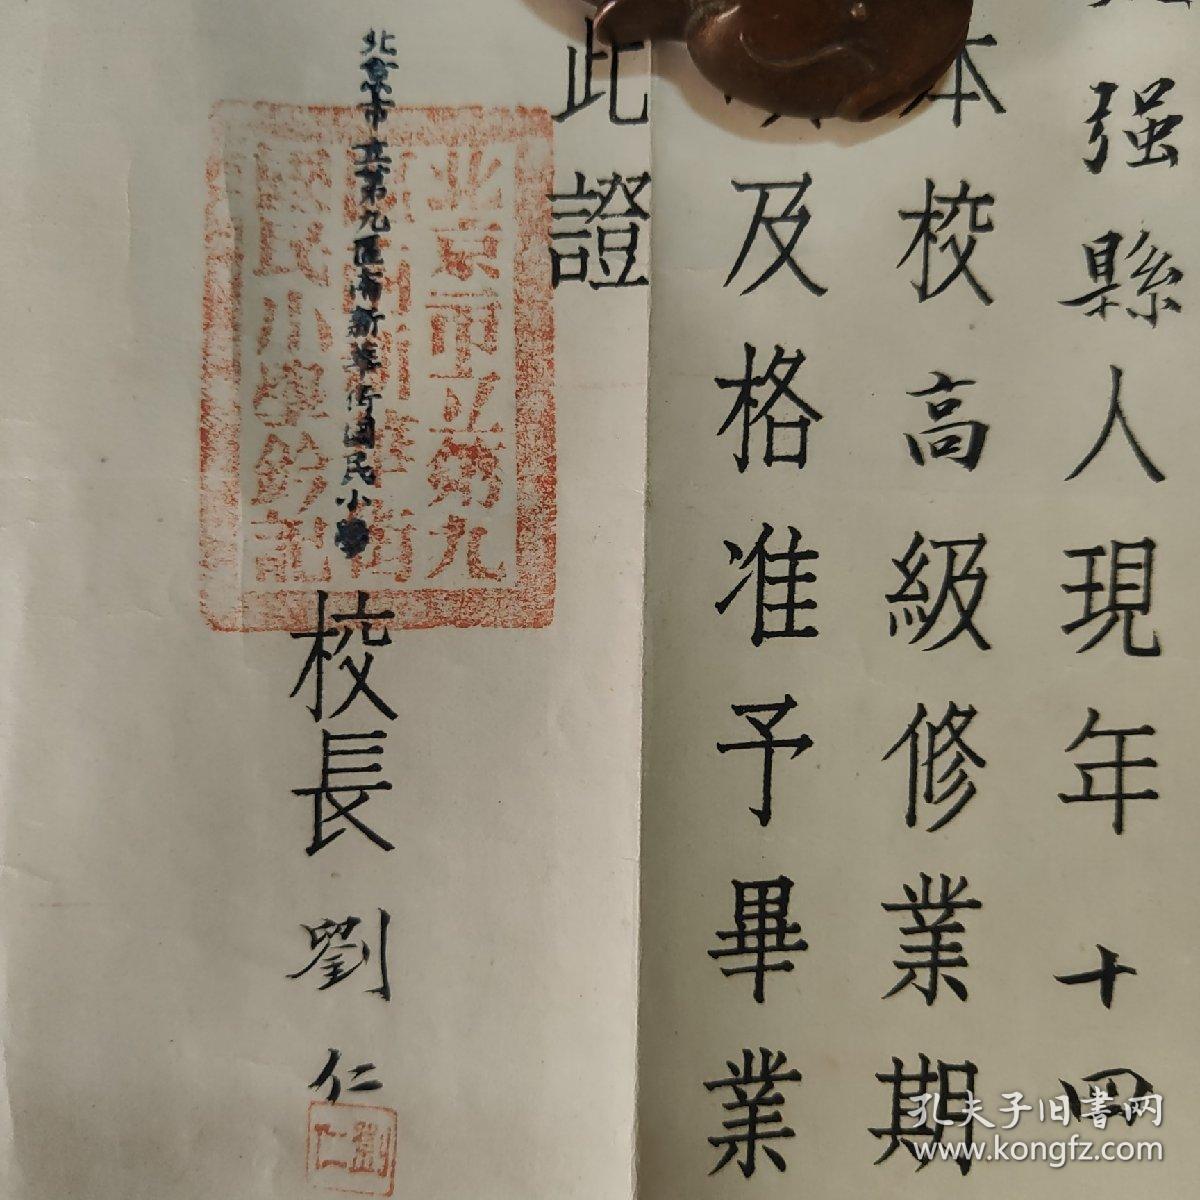 强縣人現年十四
本校高級修業期
及格准予畢業
此證
北京市立第九區南新華街國民小學
校長劉仁
北京市立第九
區南新華街
國民小學鈐記
劉仁
孔夫子旧书网
www.kongfz.com